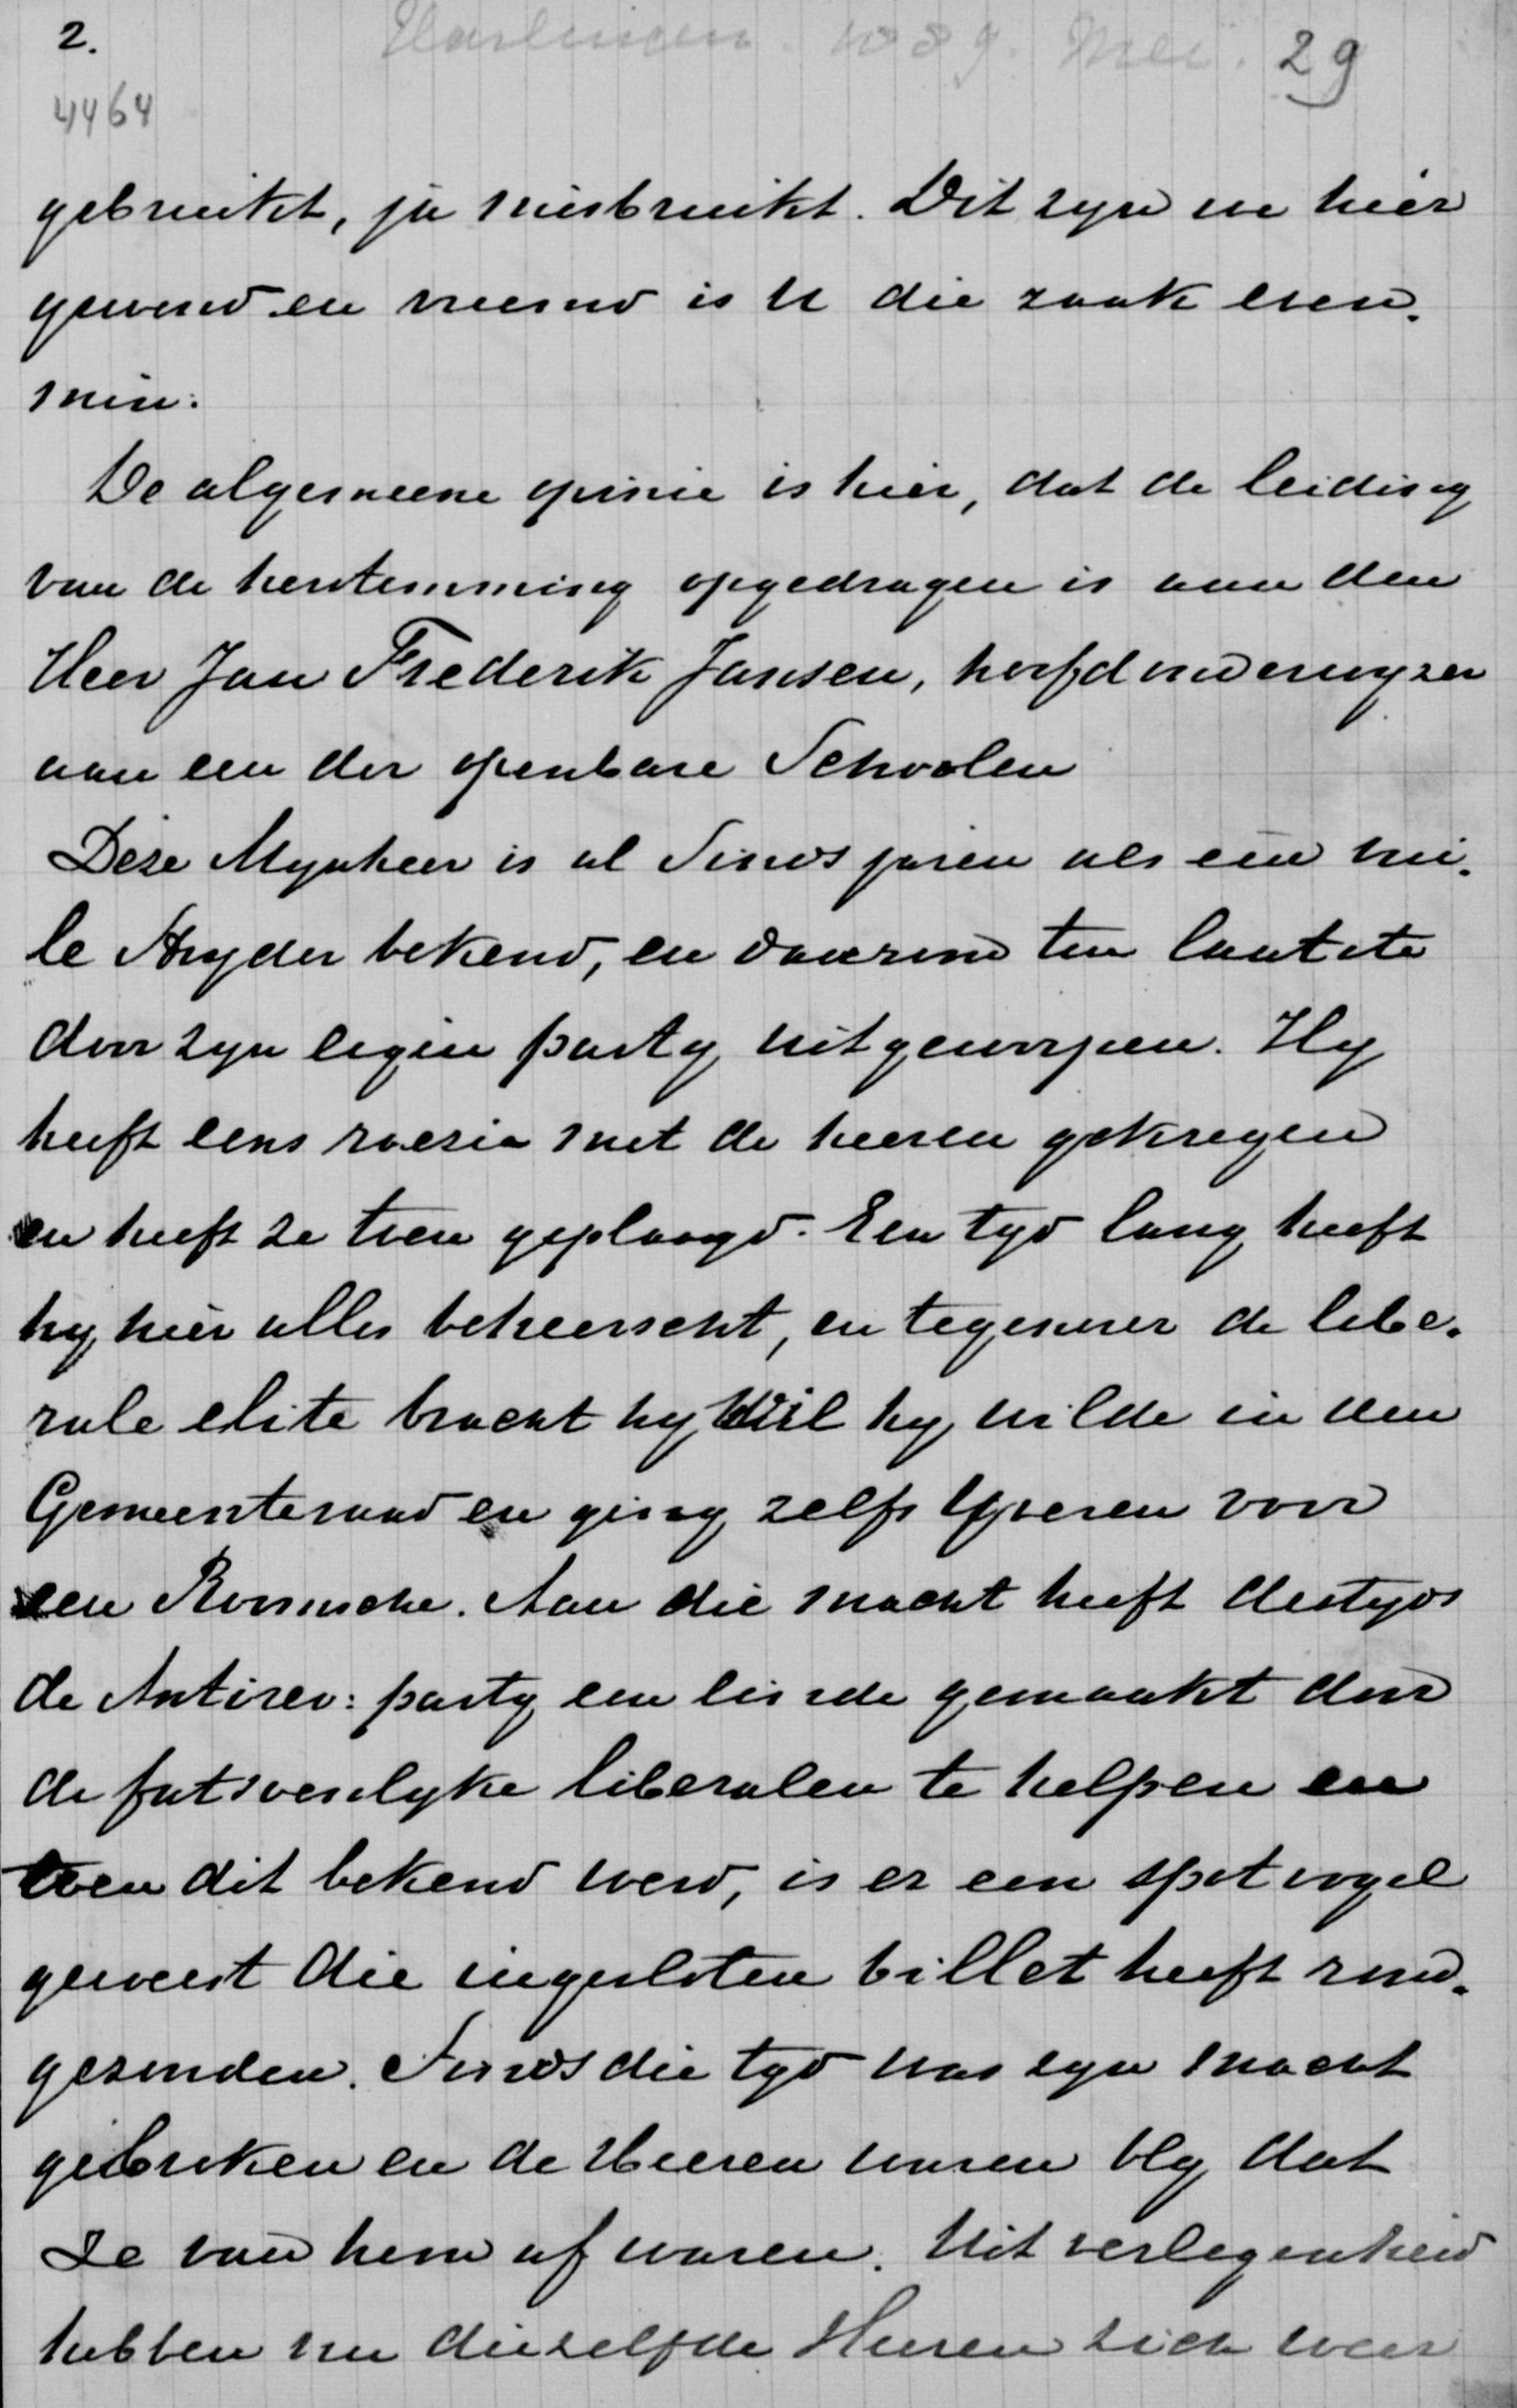 2.
Harlingen 1889. Mei. 29
4464
gebruikt, ja misbruikt. Dit zyn we hier
gewend en vreemd is U die zaak even-
min.
De algemeene opinie is hier, dat de leiding
van de herstemming opgedragen is aan den
Heer Jan Frederik Jansen, hoofdonderwyzer
aan een der openbare Schoolen
Deze Mynheer is al sinds jaren als een vui-
le stryder bekend, en daarom ten laatste
door zyn eigen party uitgeworpen. Hy
heeft eens ruzie met de heeren gekregen
en heeft ze toen geplaagd. Een tyd lang heeft
hy hier alles beheerscht, en tegenover de libe-
rale elite bracht hy wie hy wilde in den
Gemeenteraad en ging zelfs yveren voor
een Roomsche. Aan die macht heeft destyds
de Antirev: party een einde gemaakt door
de fatsoenlyke liberalen te helpen en
toen dit bekend werd, is er een spotvogel
geweest die ingesloten billet heeft rond-
gezonden. Sinds die tyd was zyn macht
gebroken en de Heeren waren bly dat
ze van hem af waren. Uit verlegenheid
hebben nu diezelfde Heeren zich weer